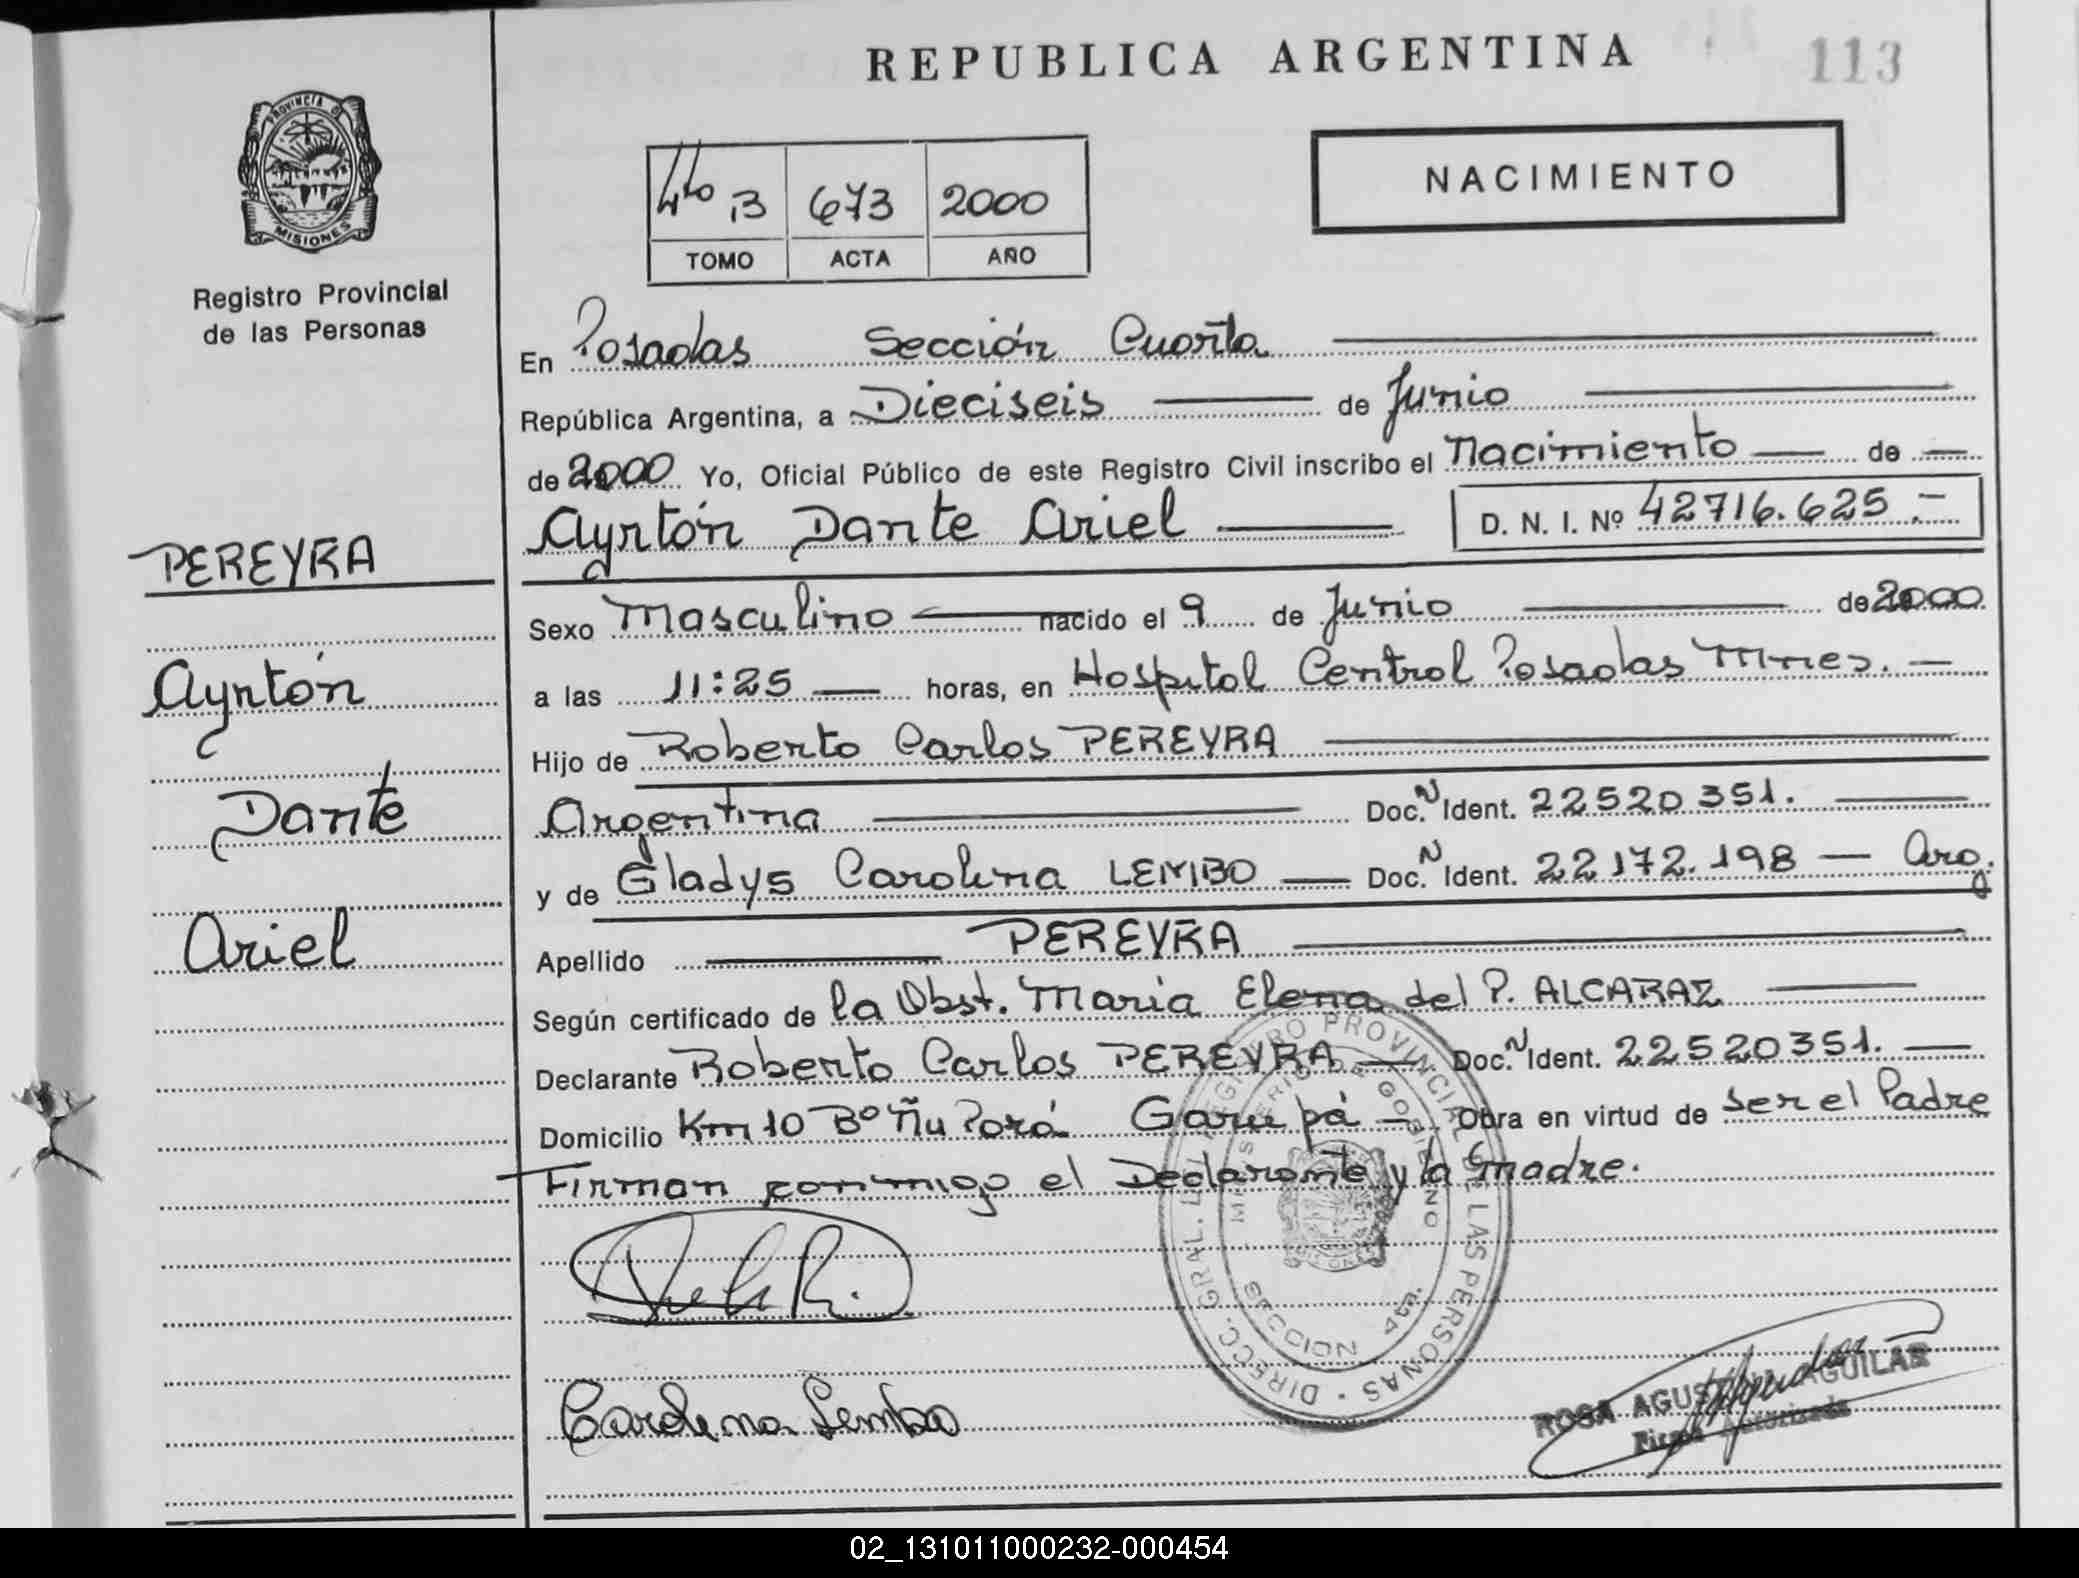 REPUBLICA ARGENTINA
113
PROVINCIA DE
MISIONES
Registro Provincial
de las Personas
4to B 673 2000
TOMO ACTA AÑO
NACIMIENTO
En Posadas Sección Cuarta
República Argentina, a Dieciseis de Junio
de 2000 Yo, Oficial Público de este Registro Civil inscribo el Nacimiento de
Ayrtón Dante Ariel D. N. I. Nº 42716.625.-
PEREYRA
Sexo Masculino nacido el 9 de Junio de 2000
Ayrtón
a las 11:25 horas, en Hospital Central Posadas Mnes.
Hijo de Roberto Carlos PEREYRA
Dante
Argentina Doc. N Ident. 22520351.
y de Gladys Carolina LEMBO Doc. N Ident. 22172.198 - Arg.
Ariel
Apellido PEREYRA
Según certificado de la Obst. Maria Elena del P. ALCARAZ
Declarante Roberto Carlos PEREYRA Doc. N Ident. 22520351.
Domicilio Km 10 Bº Ñu Porá Garupá - Obra en virtud de ser el Padre
Firman conmigo el Declarante y la madre.
DIRECC. GRAL. DEL REGISTRO PROVINCIAL DE LAS PERSONAS
MINISTERIO DE GOBIERNO
SECCION 4ta.
Carolina Lembo
ROSA AGUSTINA AGUILAR
Firma Autorizada
02_131011000232-000454